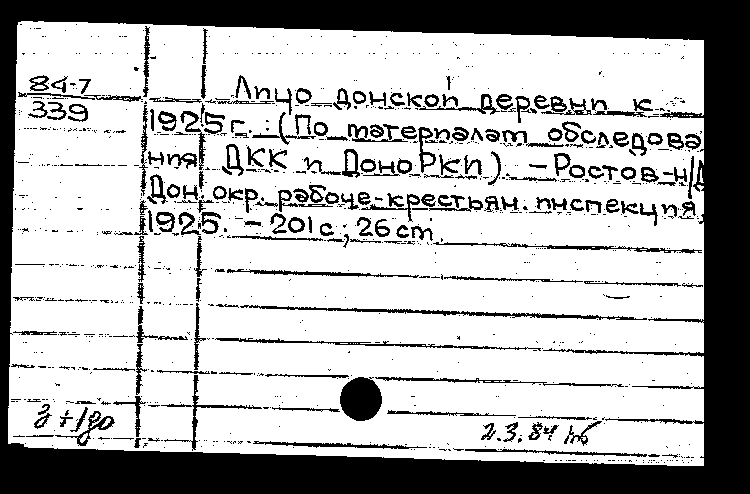 84-7
339
Лицо донской деревни к
1925 г. : (По материалам обследова
ния ДКК и ДоноРКИ). - Ростов-н/Д
Дон. окр. рабоче-крестьян. инспекция,
1925. - 201 с ; 26 cm.
2.3.84